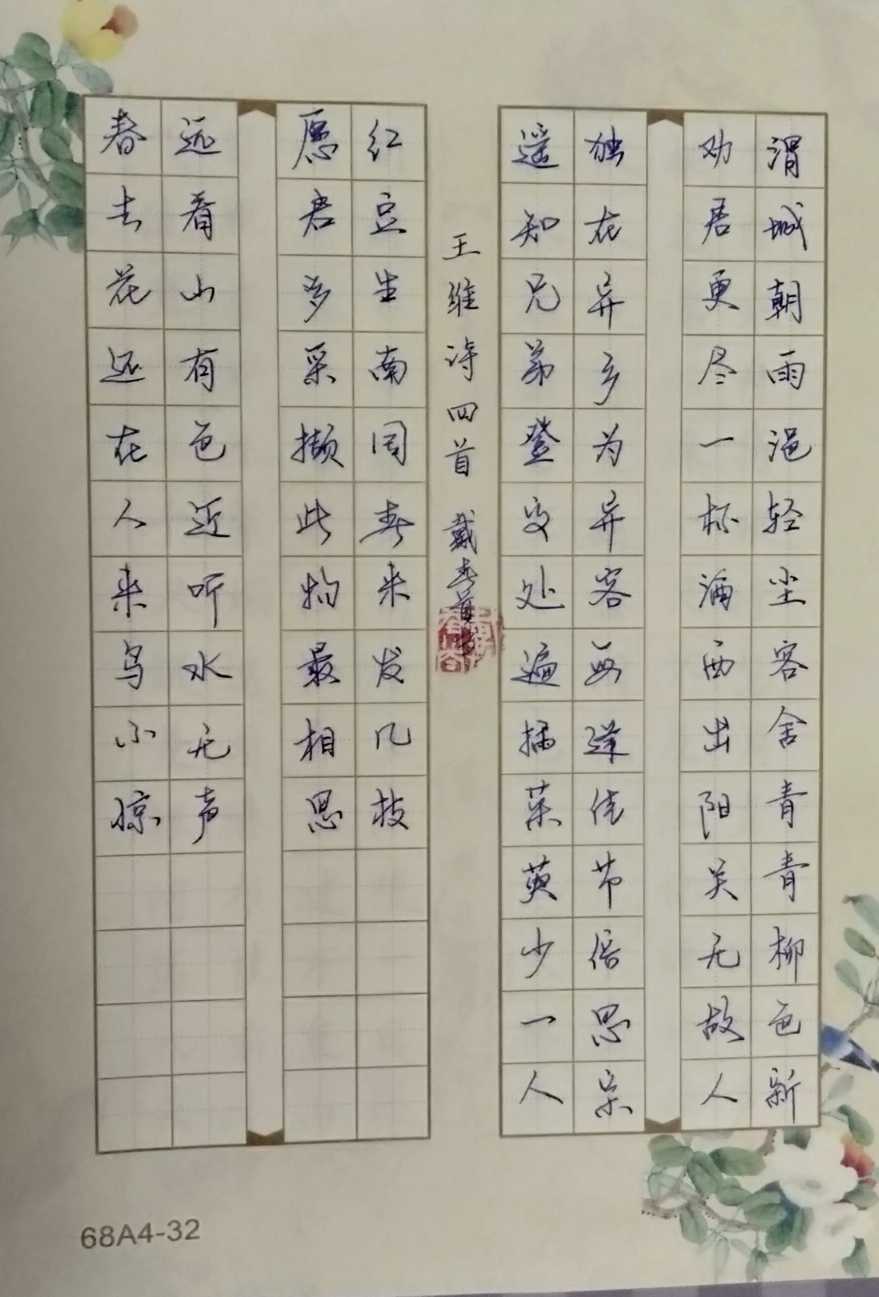 渭城朝雨浥轻尘客舍青青柳色新
劝君更尽一杯酒西出阳关无故人
独在异乡为异客每逢佳节倍思亲
遥知兄弟登高处遍插茱萸少一人
王维诗四首 戴春
红豆生南国春来发几枝
愿君多采撷此物最相思
远看山有色近听水无声
春去花还在人来鸟不惊
68A4-32